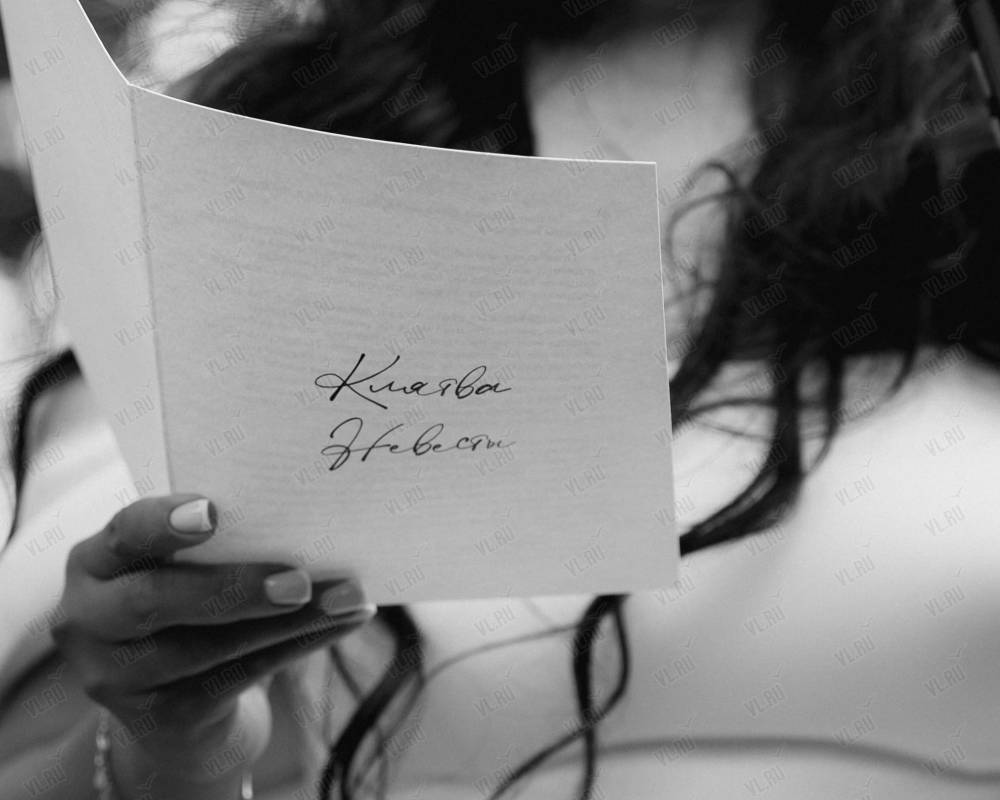 Клятва
Невесты
VL.RU